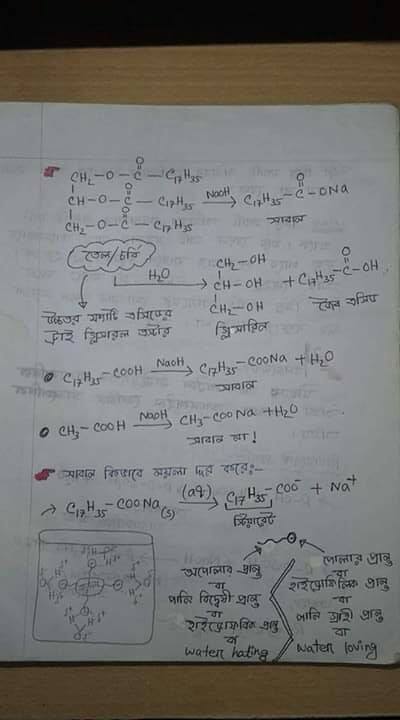 CH₂-O-C(=O)-C₁₇H₃₅
CH-O-C(=O)-C₁₇H₃₅ NaOH→ C₁₇H₃₅-C(=O)-ONa
CH₂-O-C(=O)-C₁₇H₃₅ সাবান
তৈল/চর্বি
H₂O→ CH₂-OH
CH-OH + C₁₇H₃₅-C(=O)-OH
CH₂-OH
উচ্চতর ফ্যাটি এসিডের
ট্রাই গ্লিসারল এস্টার
গ্লিসারিন জৈব এসিড
C₁₇H₃₅-COOH NaOH→ C₁₇H₃₅-COONa + H₂O
সাবান
CH₃-COOH NaOH→ CH₃-COONa + H₂O
সাবান না!
সাবান কিভাবে ময়লা দূর করে:-
→ C₁₇H₃₅-COONa(s) (aq)→ C₁₇H₃₅-COO⁻ + Na⁺
স্টিয়ারেট
অপোলার প্রান্ত
বা
পানি বিদ্বেষী প্রান্ত
বা
হাইড্রোফোবিক প্রান্ত
বা
water hating
পোলার প্রান্ত
বা
হাইড্রোফিলিক প্রান্ত
বা
পানি গ্রাহী প্রান্ত
বা
Water loving